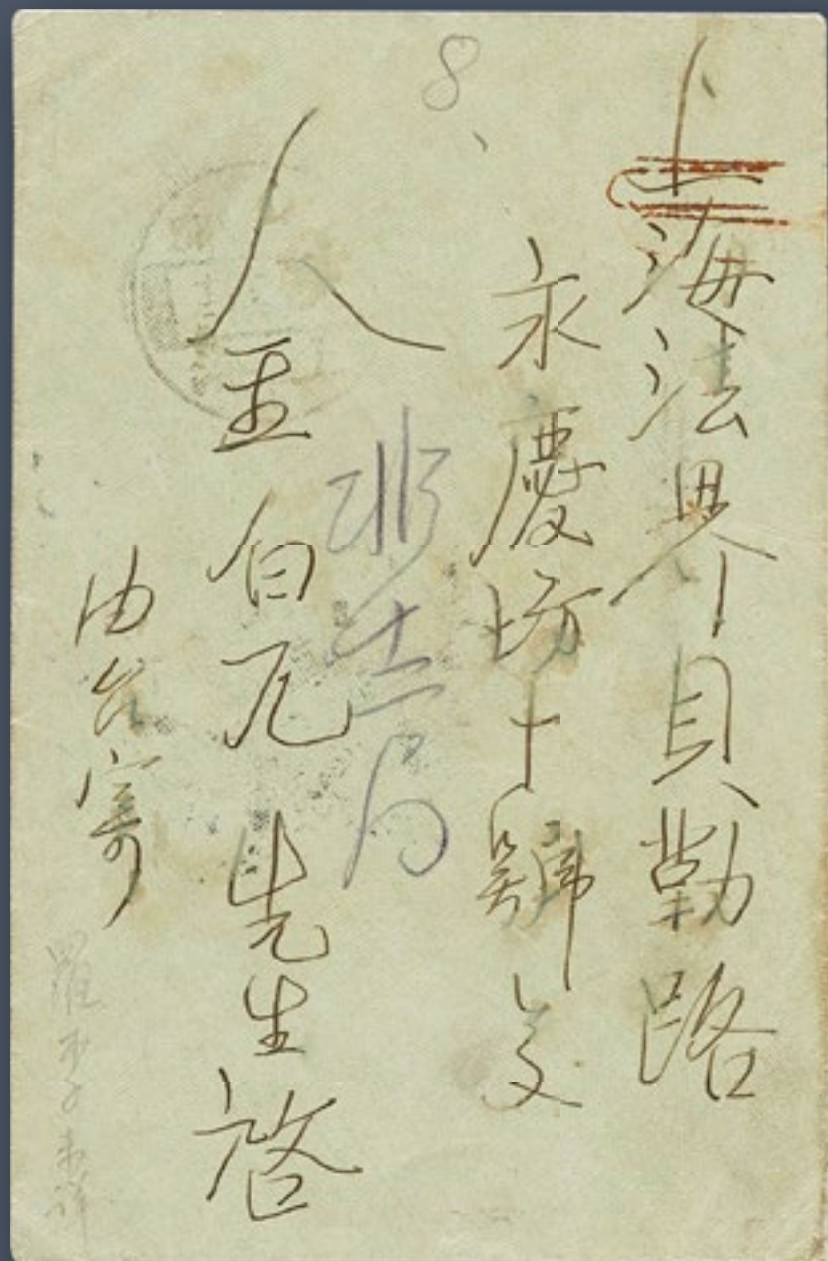 8
上海法界貝勒路
永慶坊十號交
金白凡先生啓
由台寄